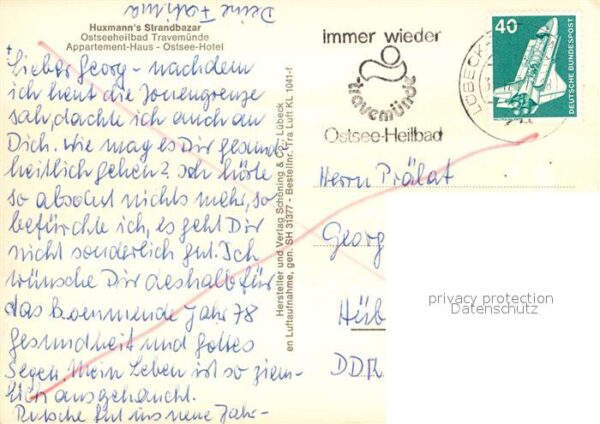 Deine Fatima
Huxmann's Strandbazar
Ostseeheilbad Travemünde
Appartement-Haus - Ostsee-Hotel
Lieber Georg - nachdem
ich heut die Zonengrenze
sah, dachte ich auch an
Dich. Wie mag es Dir gesund-
heitlich gehen? Ich hörte
so absolut nichts mehr, so
befürchte ich, es geht Dir
nicht sonderlich gut. Ich
wünsche Dir deshalb für
das kommende Jahr 78
Gesundheit und Gottes
Segen. Mein Leben ist so ziem-
lich ausgehaucht.
Rutsche gut ins neue Jahr-
Hersteller und Verlag Schöning & Co · Lübeck
en Luftaufnahme, gen. SH 31377 - Bestellnr. Tra Luft KL 1041-f
immer wieder
travemünde
Ostsee-Heilbad
LÜBECK
40
DEUTSCHE BUNDESPOST
Herrn Prälat
Georg
Hüb
DDR
privacy protection
Datenschutz